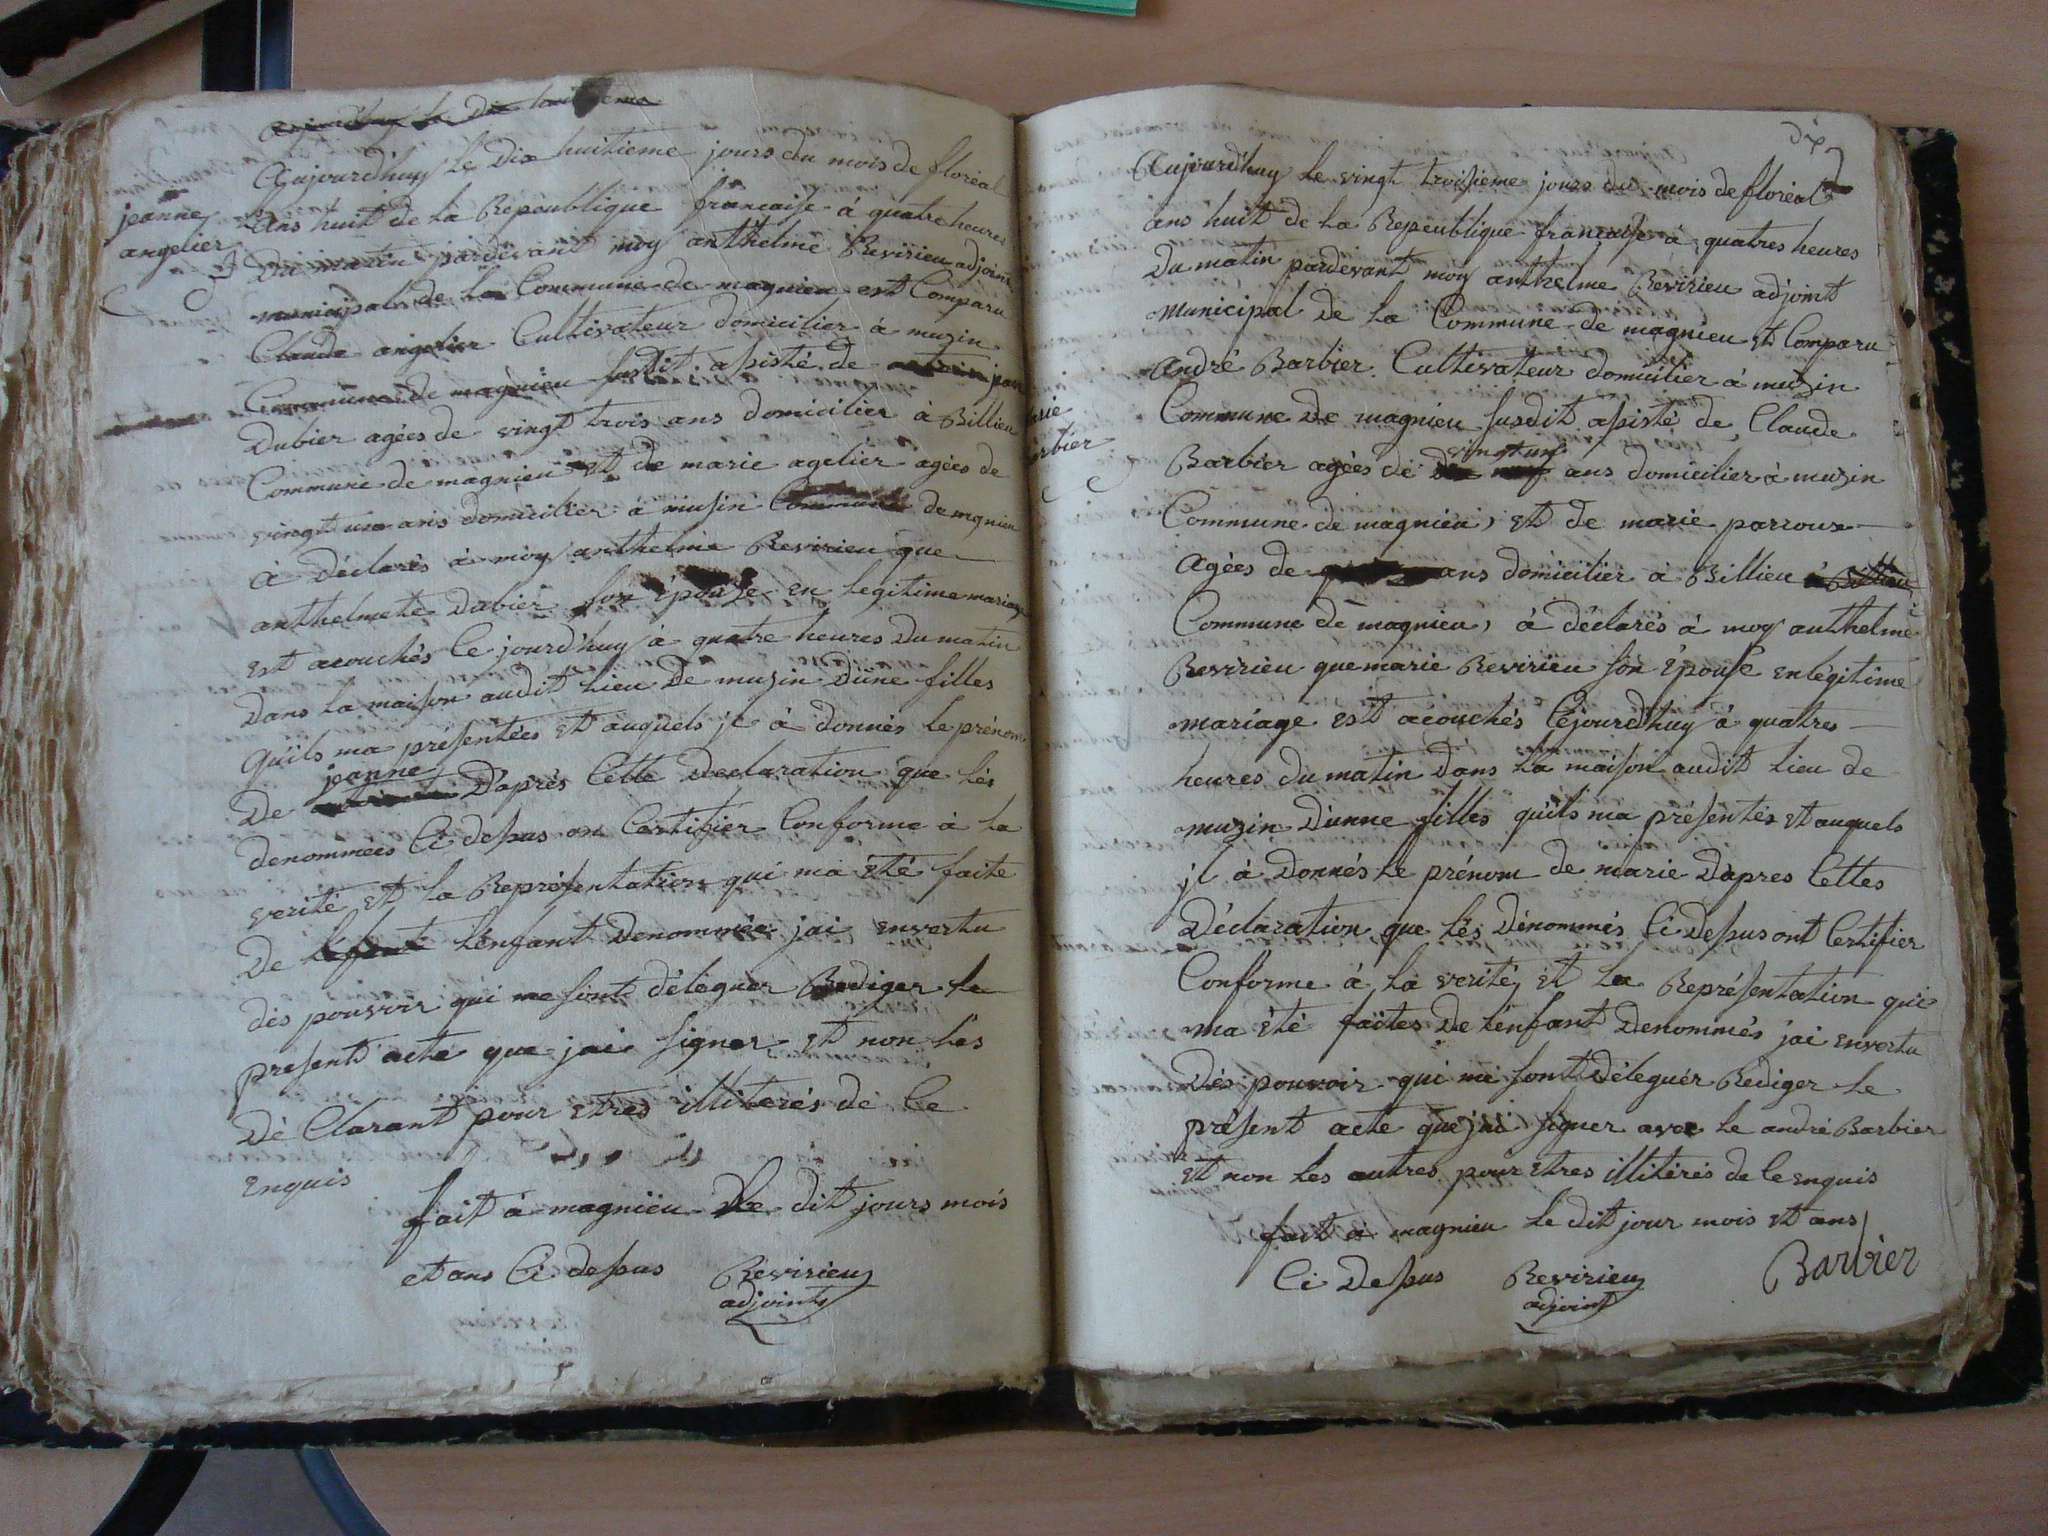 Aujourdhuy le Dix huitieme
Aujourdhuy le Dix huitieme jours du mois de floréal
jeanne
angelier
ans huit de la Repeublique francaise à quatre heures
Du matin pardevant moy anthelme Revirieu adjoint
municipal de la Commune de magnieu est Comparu
Claude angelier Cultivateur domicilier à muzin
Commune de magnieu susdit assisté de
Dubier agées de vingt trois ans domicilier à Billieu
Commune de magnieu et de marie agelier agées de
vingt un ans domicilier à musin Commune de mgnieu
à déclarés à moy anthelme Revirieu que
anthelmete Dubier son épouse en legitime mariage
est acouchés Ce jourd'huy à quatre heures Du matin
Dans la maison audit lieu De muzin Dune filles
quils ma présentées et auquels jl à donnés le prénom
jeanne
De D'aprés Cette Declaration que lés
denommées Ci dessus on Certifier Conforme à la
verité et la Représentation qui ma été faite
De l'enfant Denommée jai envertu
dés pouvoir qui me sont déléguer Rediger le
present acte que jai signer et non les
Dé Clarant pour etres illiterés de Ce
enquis
fait à magnieu Le dit jours mois
et ans Ci dessus Revirieu
adjoint
Aujourdhuy le vingt troisieme jours du mois de floréal
ans huit de la Repeublique francaise à quatres heures
Du matin pardevant moy anthelme Revirieu adjoint
municipal De la Commune de magnieu et Comparu
andré Barbier Cultivateur domicilier à muzin
Commune De magnieu susdit assisté de Claude
vingt un
Barbier agées de dix neuf ans domicilier à muzin
Commune de magnieu, et de marie parroux
Agées de ans domicilier à Billieu à Billieu
Commune de magnieu, à déclarés à moy anthelme
Revirieu que marie Revirieu son épouse en légitime
mariage est acouchés Cejourdhuy à quatres
heures du matin Dans la maison audit lieu de
muzin Dunne filles quils ma présentés et auquels
jl à Donnés le prénom de marie Daprés Cettes
Déclaration que lés Dénommés Ci Dessus ont Certifier
Conforme à la verité, et la Représentation qui
ma été faîtes De l'enfant Denommés jai envertu
Dés pouvoir qui me sont Déleguér Rédiger le
présent acte que jai signer avec le andré Barbier
et non les autres pour etres illitérés de Ce enquis
fait à magnieu le dit jour mois et ans
Ci Dessus Revirieu Barbier
adjoint